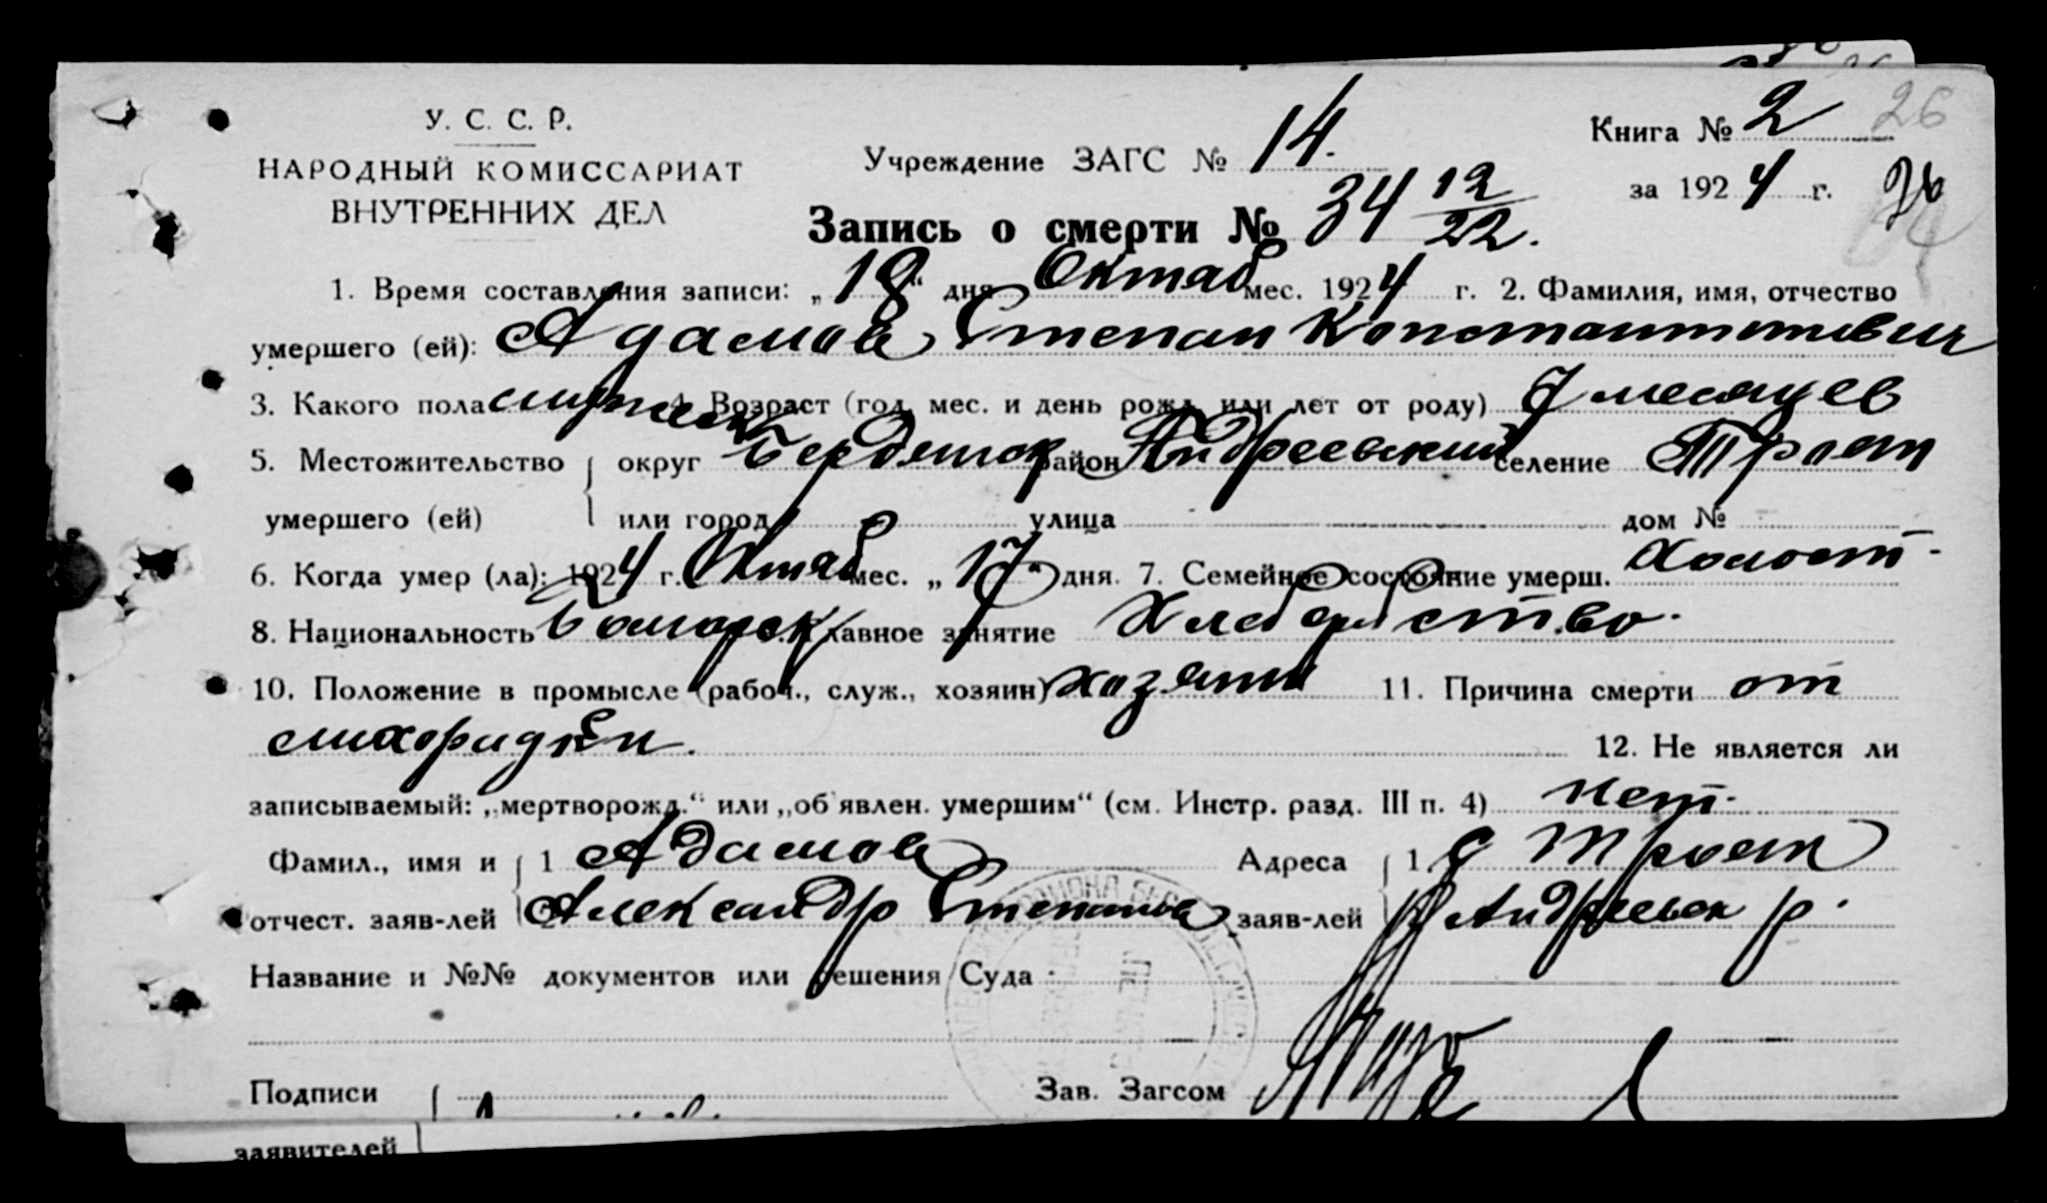 26
У. С. С. Р.
НАРОДНЫЙ КОМИССАРИАТ
ВНУТРЕННИХ ДЕЛ
Учреждение ЗАГС № 14.
Книга № 2
за 1924 г.
26
Запись о смерти № 34 12/22.
1. Время составления записи: „18“ дня Октяб мес. 1924 г. 2. Фамилия, имя, отчество
умершего (ей): Адамов Степан Константинович
3. Какого пола мужск 4. Возраст (год, мес. и день рожд. или лет от роду) 7 месяцев
5. Местожительство округ Бердянск район Андреевский селение Троян
умершего (ей) или город улица дом №
6. Когда умер (ла): 1924 г. Октяб мес. „17“ дня. 7. Семейное состояние умерш. Холост.
8. Национальность Болгарск главное занятие Хлебробство.
10. Положение в промысле (рабоч., служ., хозяин) хозяин 11. Причина смерти от
лихорадки. 12. Не является ли
записываемый: „мертворожд.“ или „об'явлен. умершим“ (см. Инстр. разд. III п. 4) Нет.
Фамил., имя и 1 Адамов Адреса 1 с Троян
отчест. заяв-лей 2 Александр Степанов заяв-лей 2 Андреевск р.
Название и №№ документов или решения Суда :
Подписи Зав. Загсом
заявителей